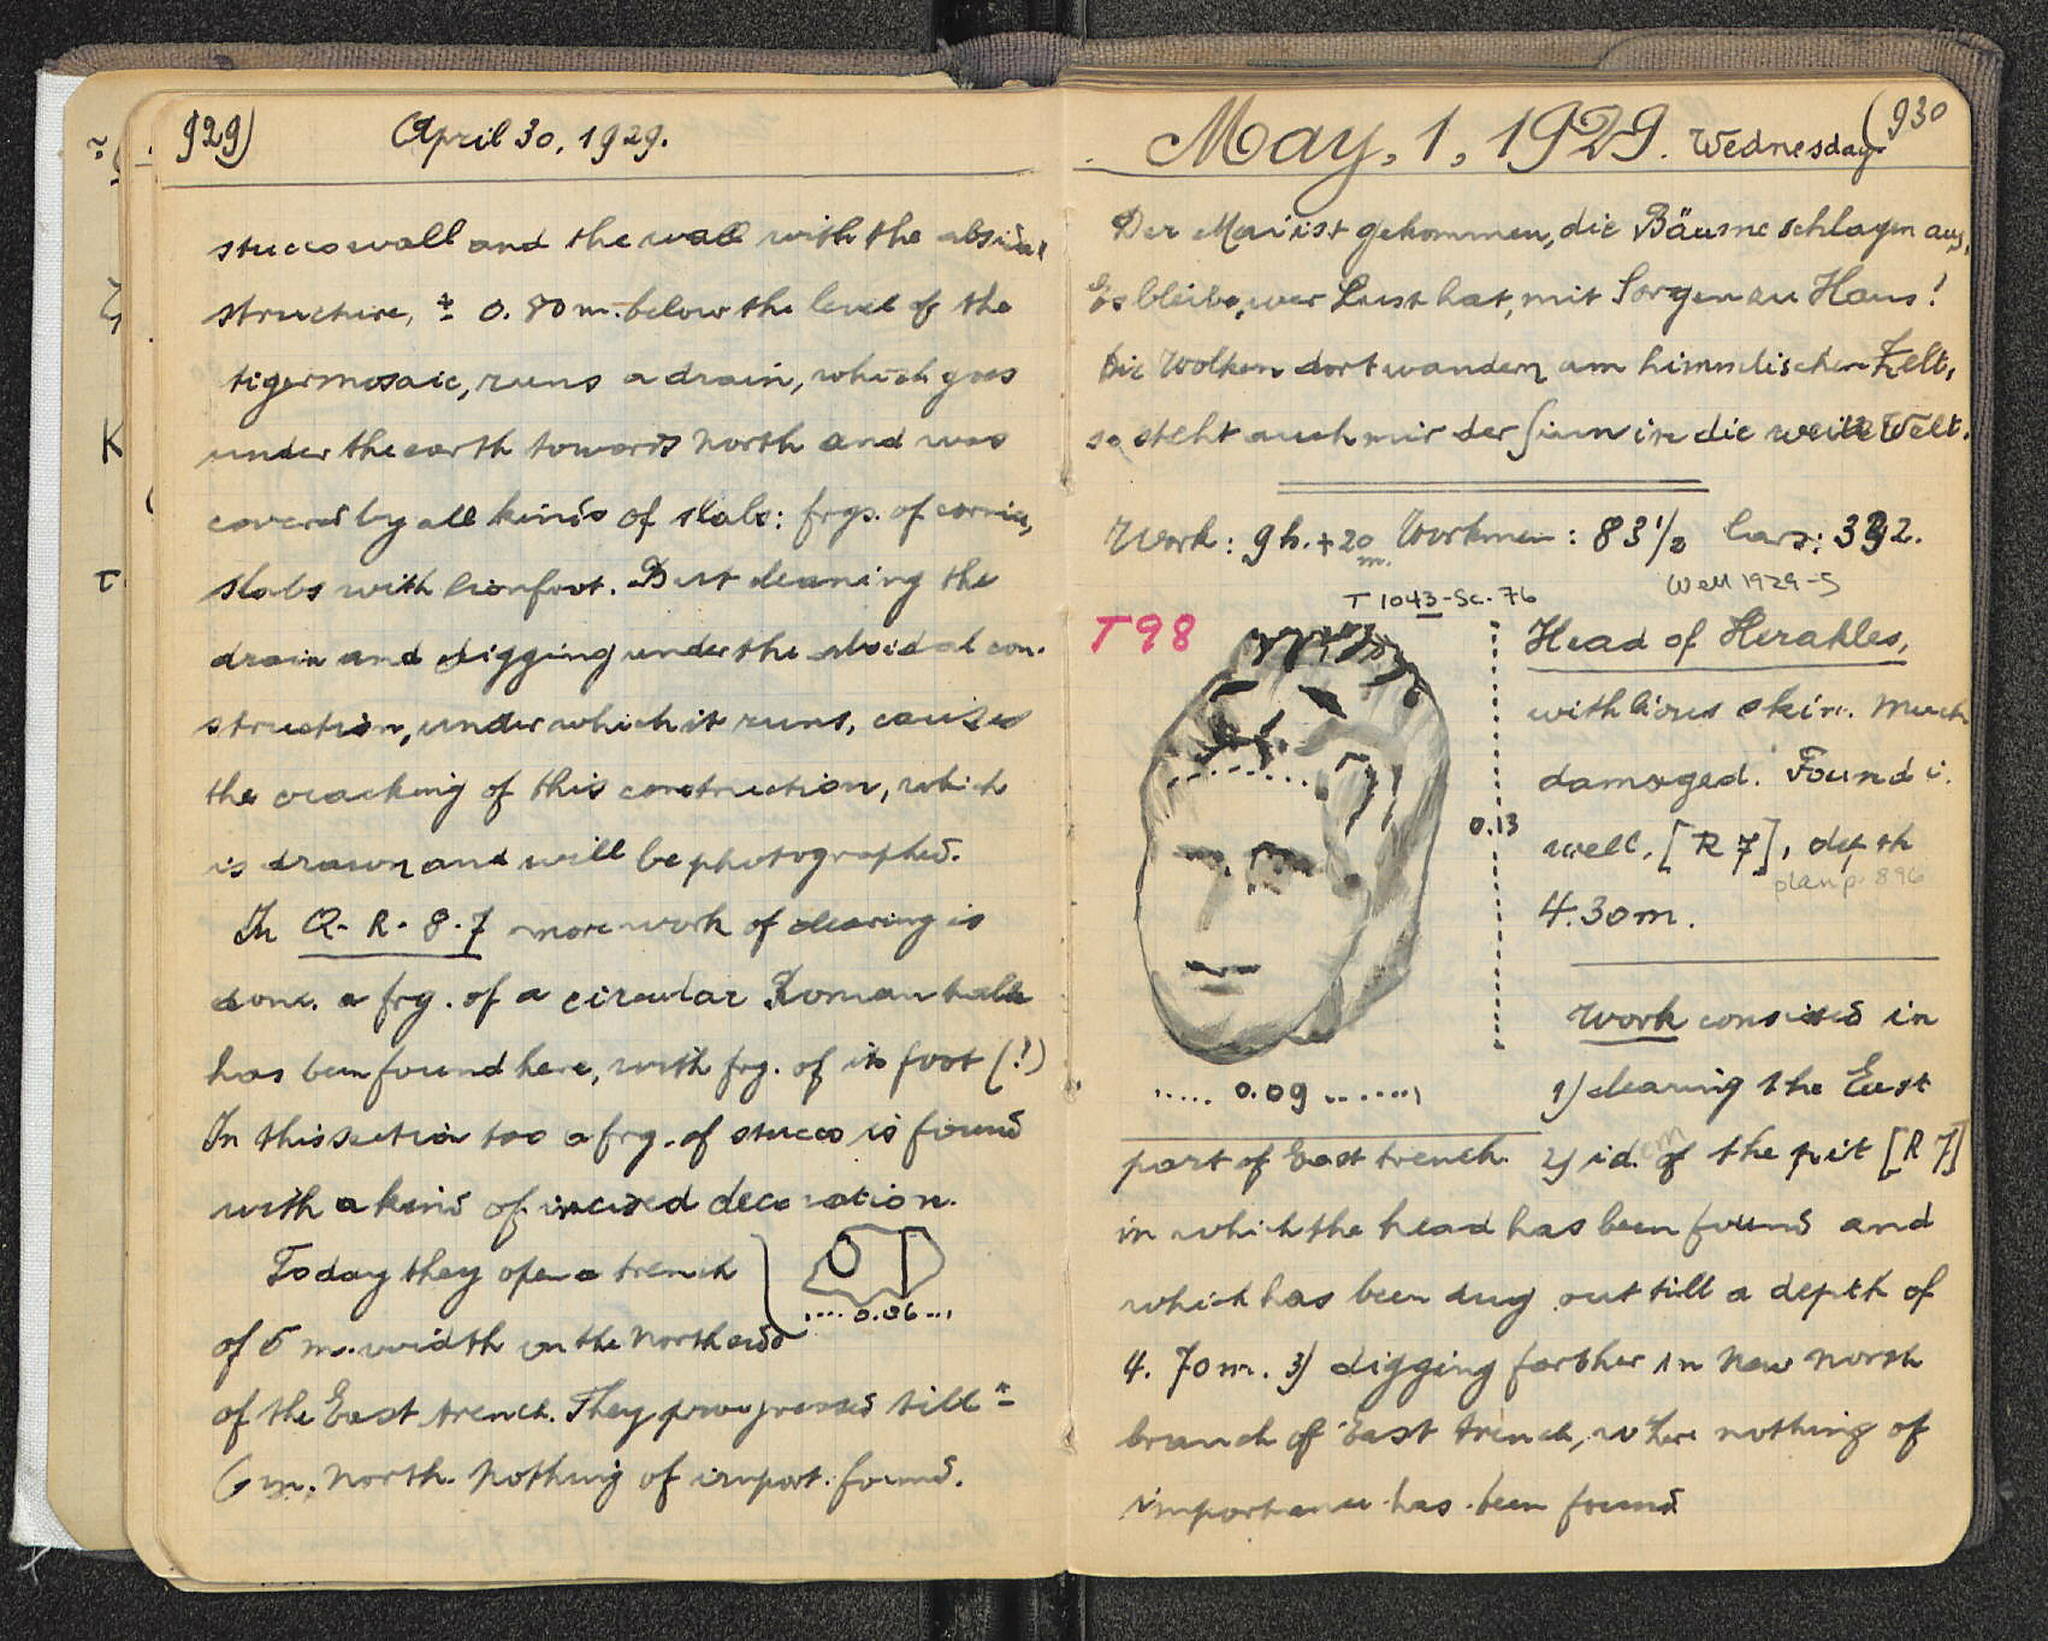 929)
April 30, 1929.
stuccowall and the wall with the absidal
structure, ± 0.80 m. below the level of the
tigermosaic, runs a drain, which goes
under the earth towards North and was
covered by all kinds of slabs: frgs. of cornice,
slabs with lionfoot. But cleaning the
drain and digging under the absidal con-
struction, under which it runs, caused
the cracking of this construction, which
is drawn and will be photographed.
In Q. R. 8. 7 more work of clearing is
done. a frg. of a circular Roman table
has been found here, with frg. of its foot (!)
In this section too a frg. of stucco is found
with a kind of incised decoration.
Today they open a trench
.... 0.06 ...
of 5 m. width on the North side
of the East trench. They progressed till ±
6 m. North. Nothing of import. found.
May, 1, 1929. Wednesday.
(930
Der Mai ist gekommen, die Bäume schlagen aus,
Es bleibe, wer Lust hat, mit Sorgen zu Haus!
Die Wolken dort wandern am himmlischen Zelt,
so steht auch mir der Sinn in die weite Welt.
Work: 9 h. + 20 m. Workmen: 83 1/2 Cars: 392.
Well 1929-5
T 1043-Sc. 76
T98
Head of Herakles,
with lions skin. Much
damaged. Found i.
0.13
well, [R 7], depth
plan p. 896
4.30 m.
Work consisted in
..... 0.09 .......
1) clearing the East
part of East trench. 2) id. of the pit [R 7]
in which the head has been found and
which has been dug out till a depth of
4.70 m. 3) digging farther in new North
branch of East trench, where nothing of
importance has been found